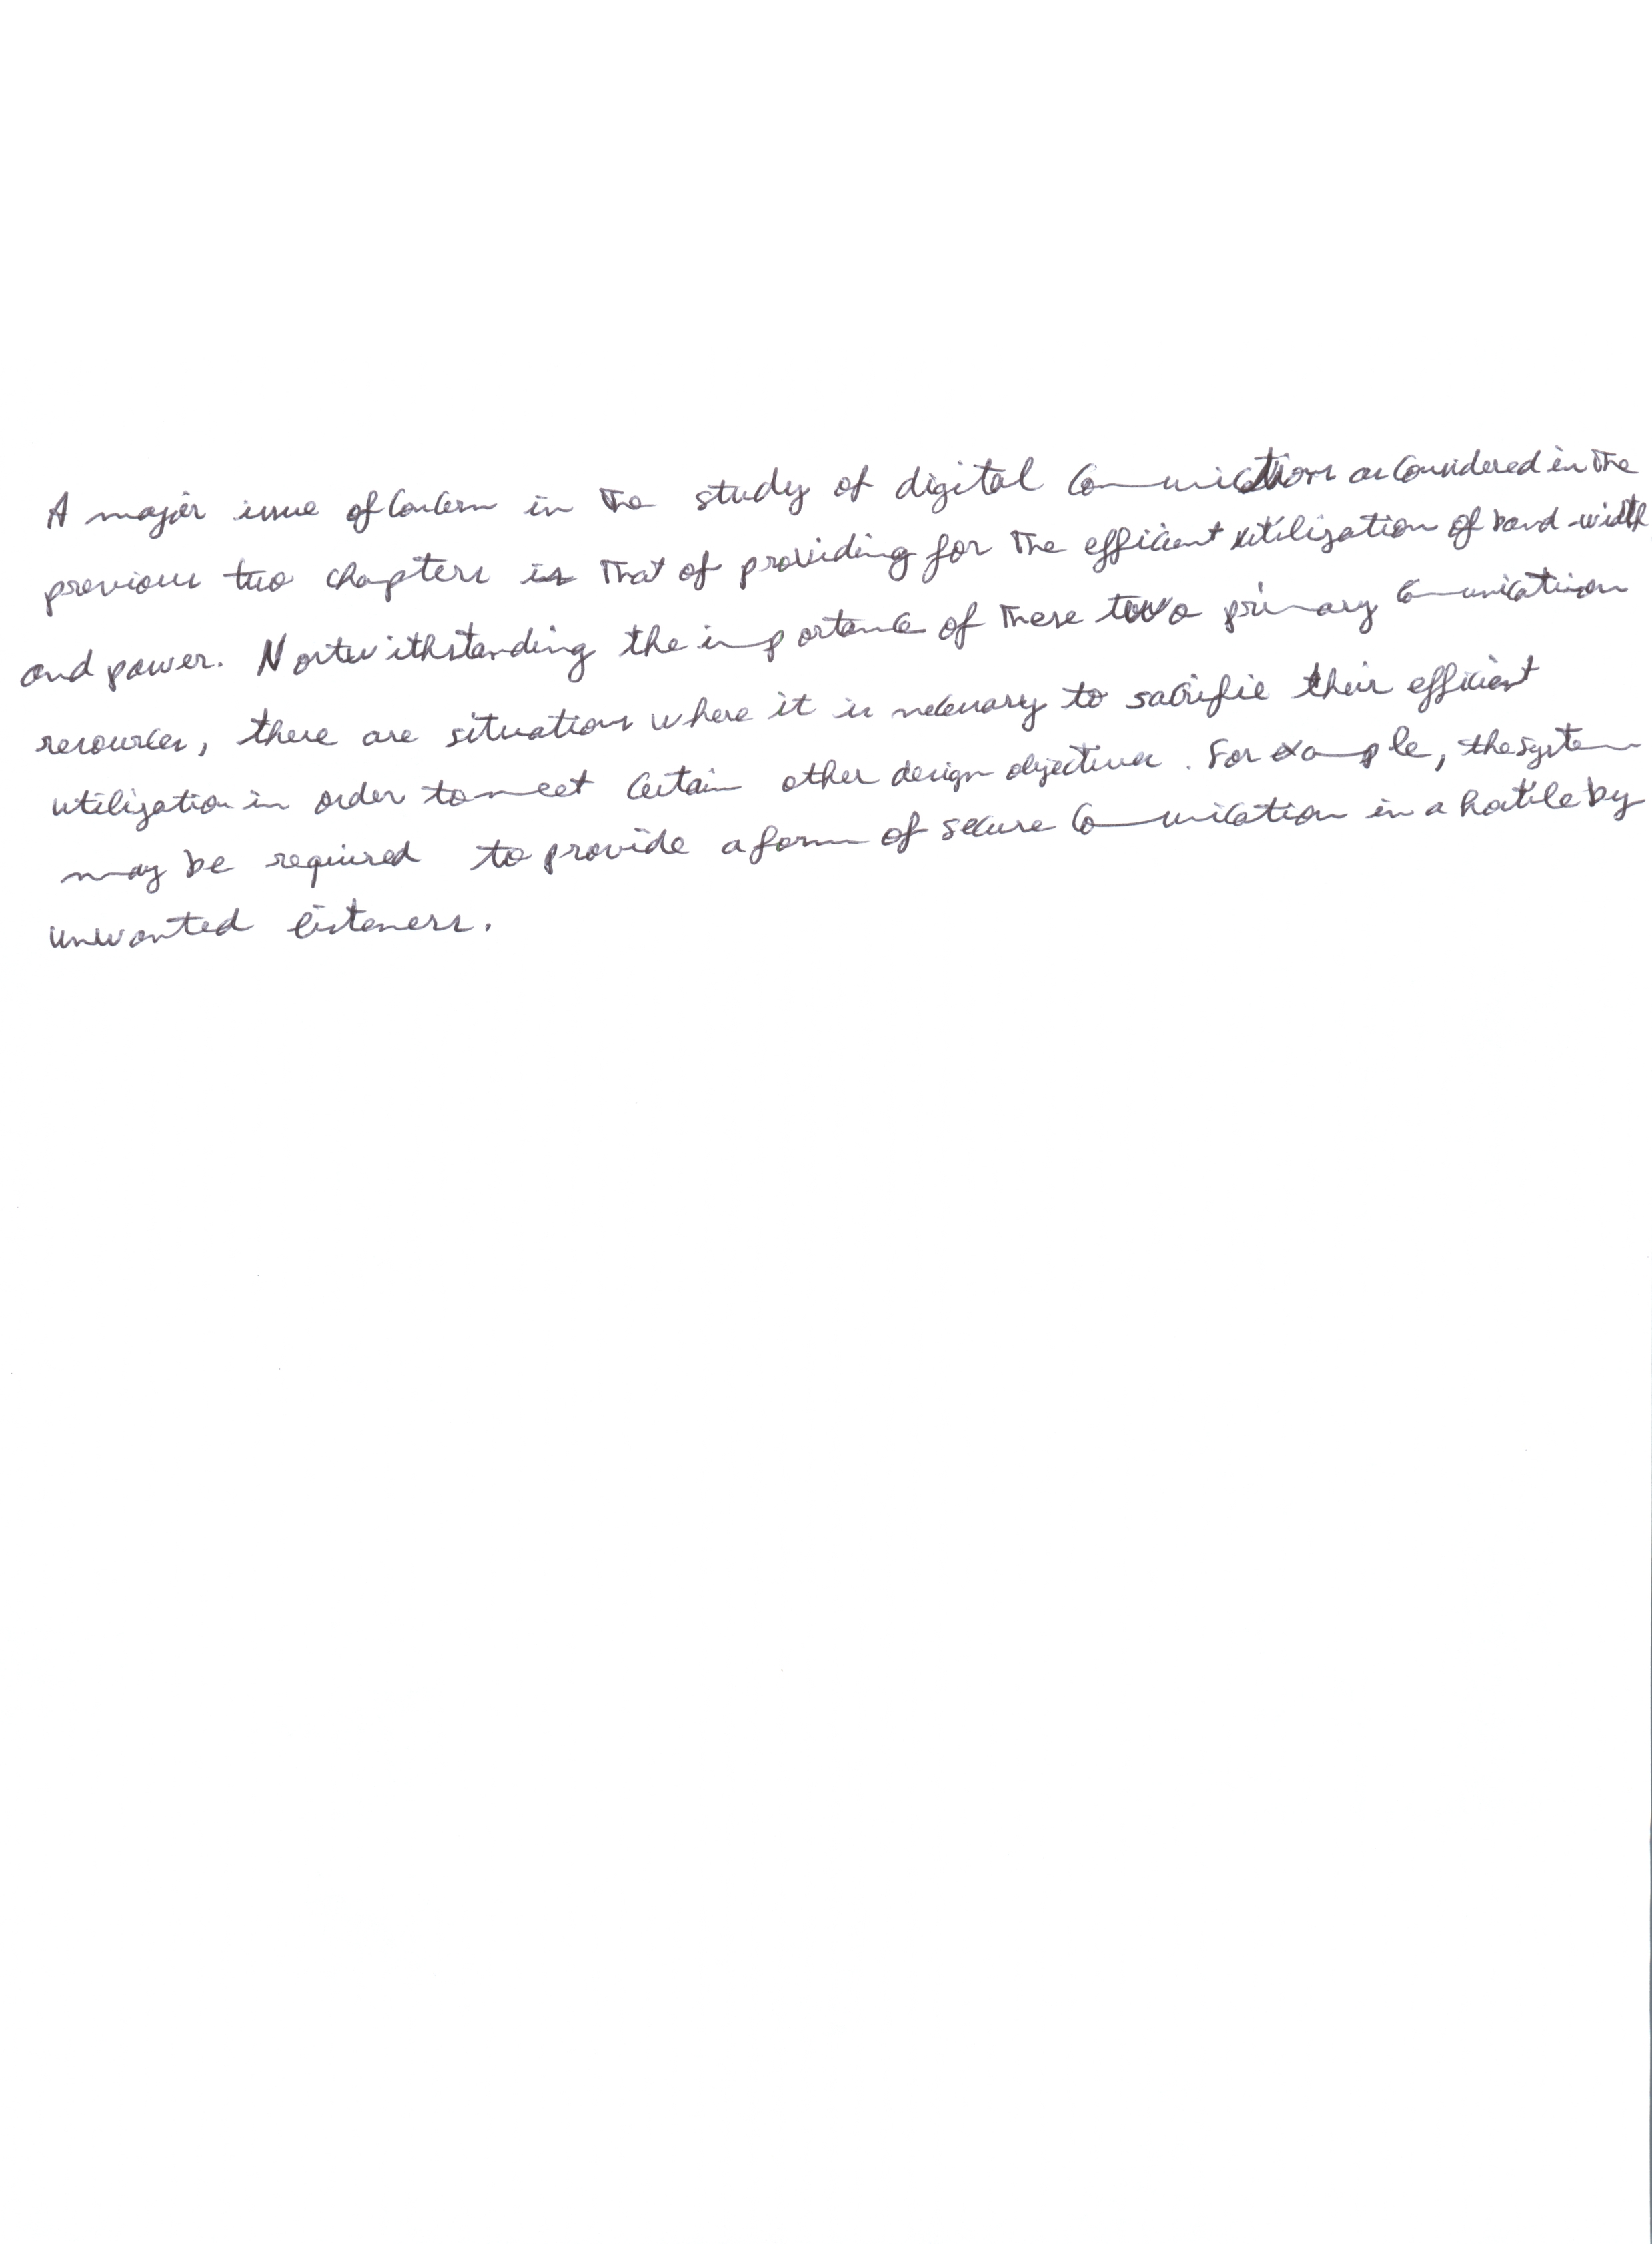 A major issue of concern in the study of digital communications as considered in the
previous two chapters is that of providing for the efficient utilization of band-width
and power. Nortwithstanding the importance of these two primary communication
resources, there are situations where it is necessary to sacrifie their efficient
utilization in order to meet certain other design objectives. For example, the system
may be required to provide a form of secure communication in a hostile by
unwanted listeners.